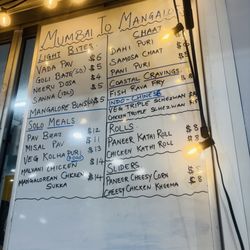 MUMBAI TO MANGALO
LIGHT BITES
VADA PAV $6
GOLI BAJE (5) $5
NEERU DOSA $4
SANNA (IDLI) $5
MANGALORE BUNS $5
SOLO MEALS
PAV BHAJI $12
MISAL PAV $11
VEG KOLHAPURI $13
MALVANI CHICKEN $14
MANGALOREAN CHICKEN $14
SUKKA
CHAAT
DAHI PURI $
SAMOSA CHAAT $8
PANI PURI
COASTAL CRAVINGS
FISH RAVA FRY
INDO-CHINESE
VEG TRIPLE SCHEZWAN
CHICKEN TRIPLE SCHEZWAN
ROLLS
PANEER KATHI ROLL $
CHICKEN KATHI ROLL $
SLIDERS
PANEER CHEESY CORN $8
CHEESY CHICKEN KHEEMA $8